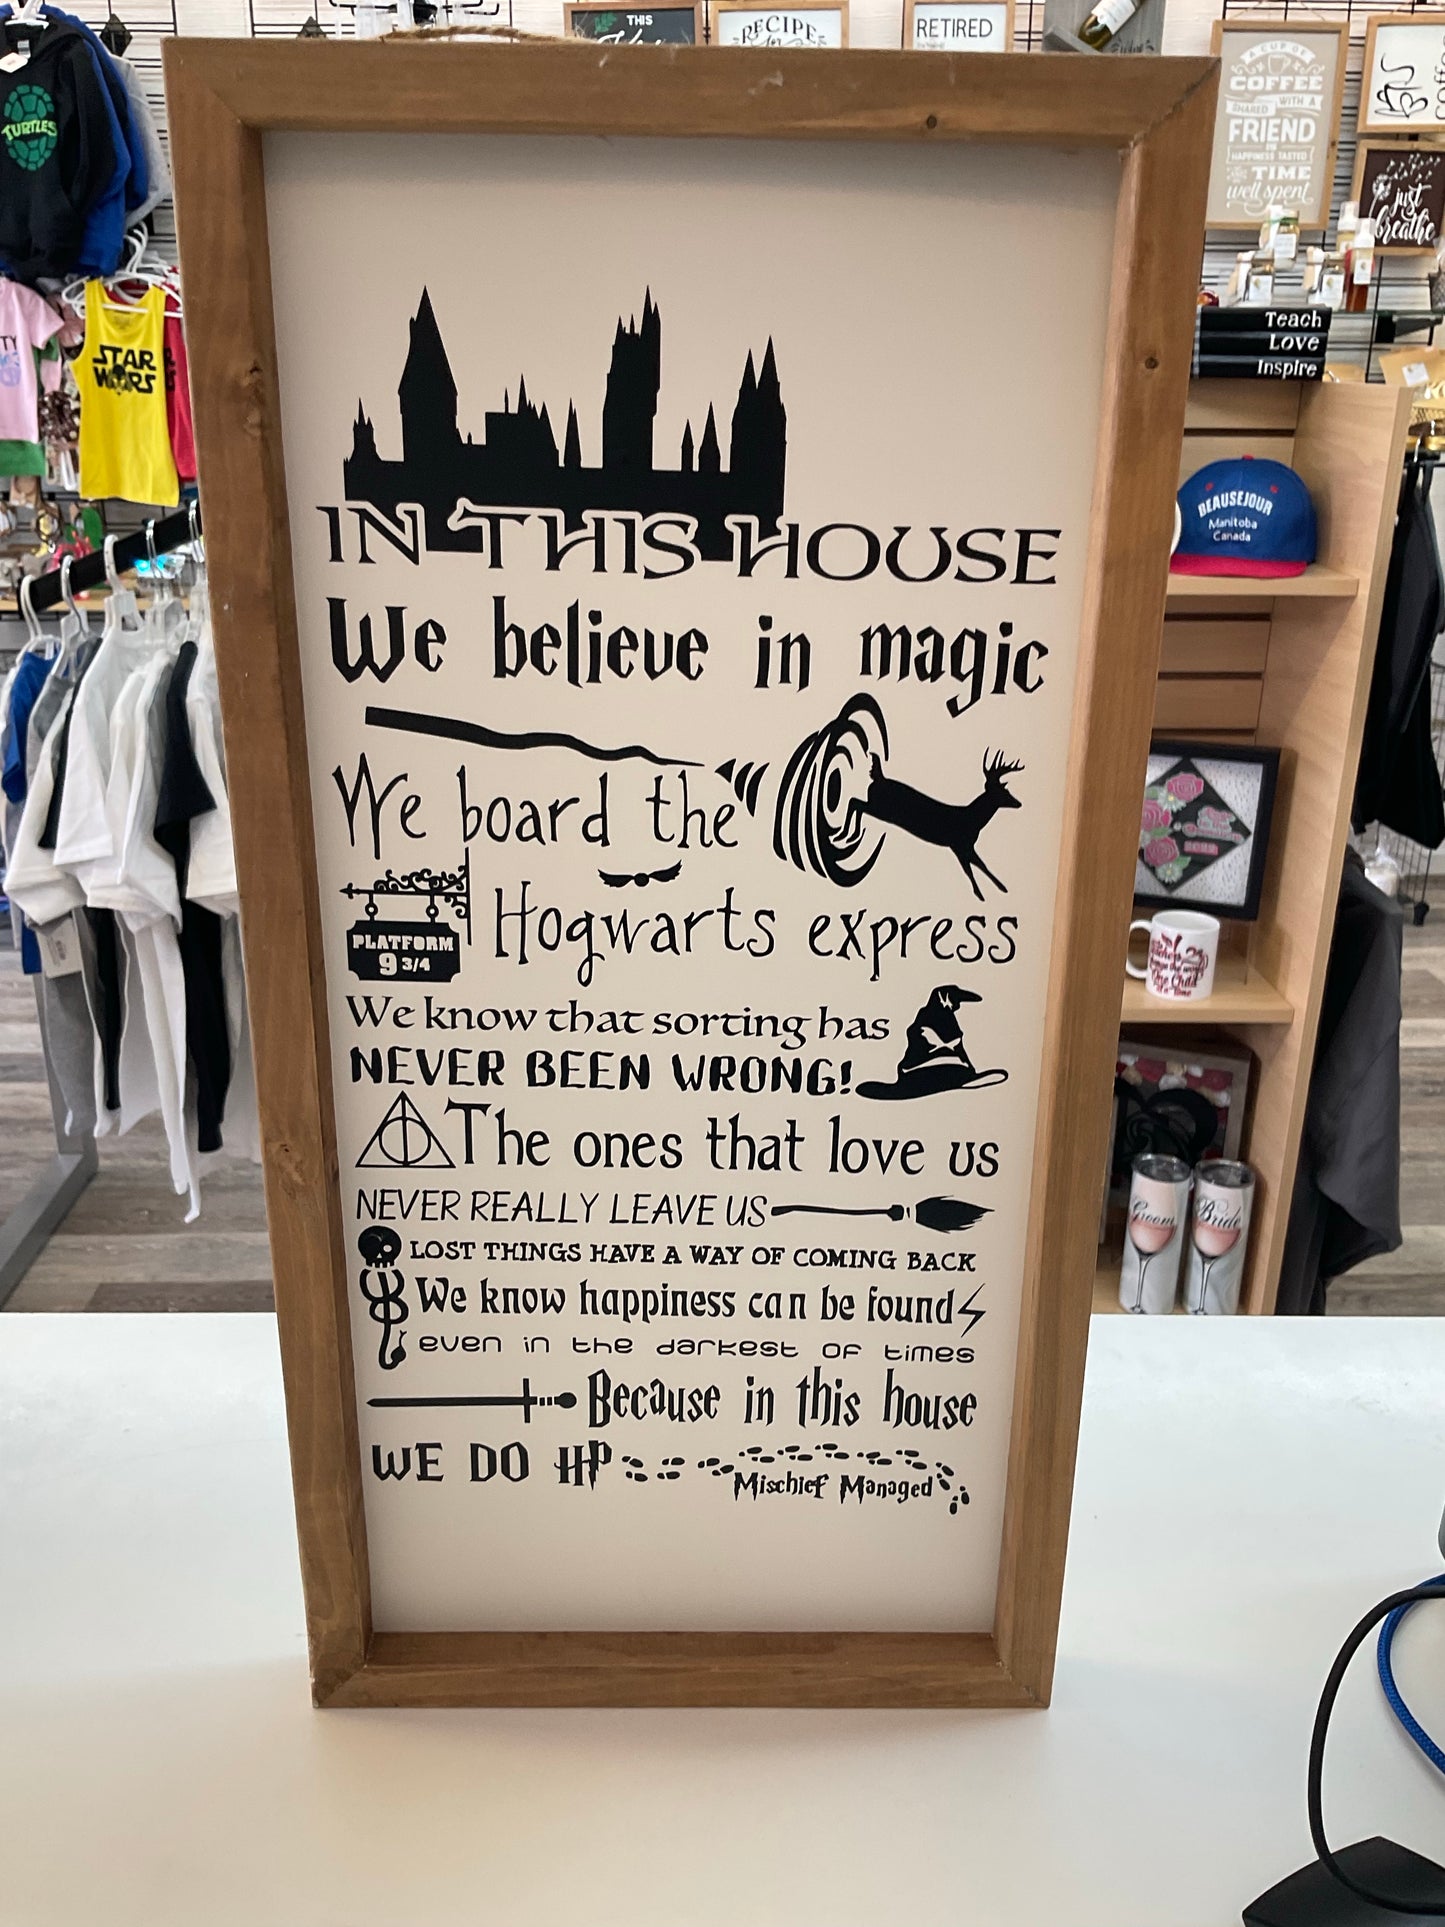 THIS
RECIPE
for
RETIRED
A CUP OF
COFFEE
SHARED WITH A
FRIEND
IS
HAPPINESS TASTED
TIME
well spent
just
breathe
TURTLES
STAR
WARS
Teach
Love
Inspire
BEAUSEJOUR
Manitoba
Canada
2022
Groom
Bride
IN THIS HOUSE
We believe in magic
We board the
PLATFORM
9 3/4
Hogwarts express
We know that sorting has
NEVER BEEN WRONG!
The ones that love us
NEVER REALLY LEAVE US
LOST THINGS HAVE A WAY OF COMING BACK
We know happiness can be found
even in the darkest of times
Because in this house
WE DO HP
Mischief Managed